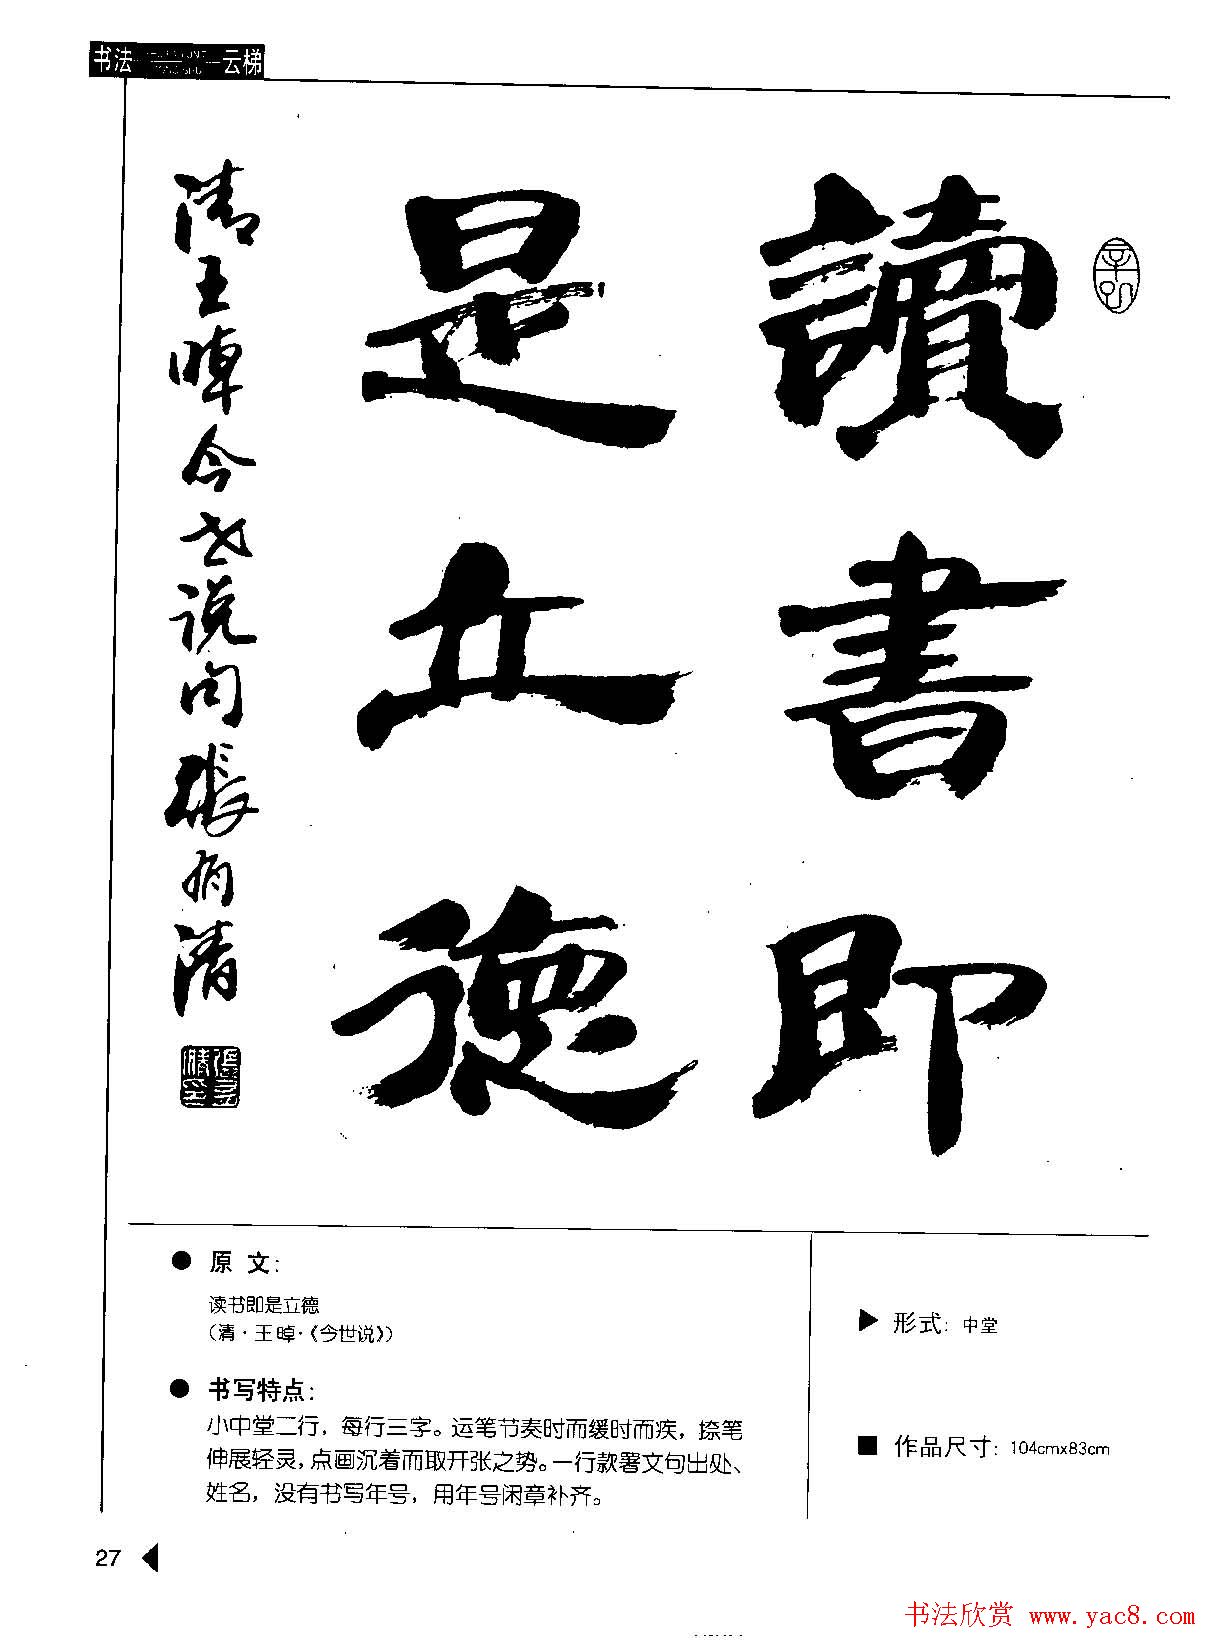 书法
云梯
讀書即
是立德
清王晫今世说句張有清
● 原 文：
读书即是立德
（清·王晫·《今世说》）
● 书写特点：
小中堂二行，每行三字。运笔节奏时而缓时而疾，捺笔
伸展轻灵，点画沉着而取开张之势。一行款署文句出处、
姓名，没有书写年号，用年号闲章补齐。
▶ 形式：中堂
■ 作品尺寸：104cmx83cm
27
书法欣赏 www.yac8.com